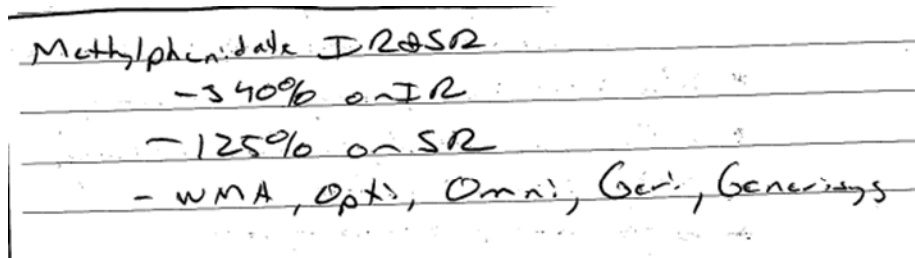 Methylphenidate IR & SR
- 340% on IR
- 125% on SR
- WMA, Opti, Omni, Geri, Generisys